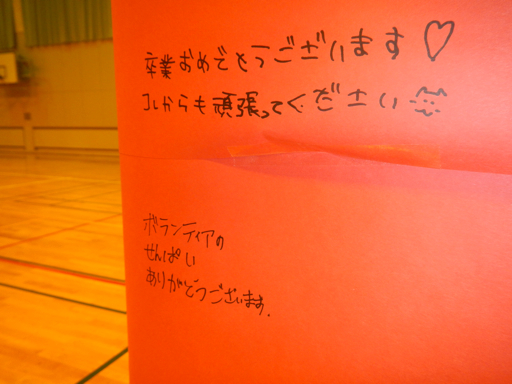 卒業おめでとうございます♡
コレからも頑張ってください
ボランティアの
せんぱい
ありがとうございます.